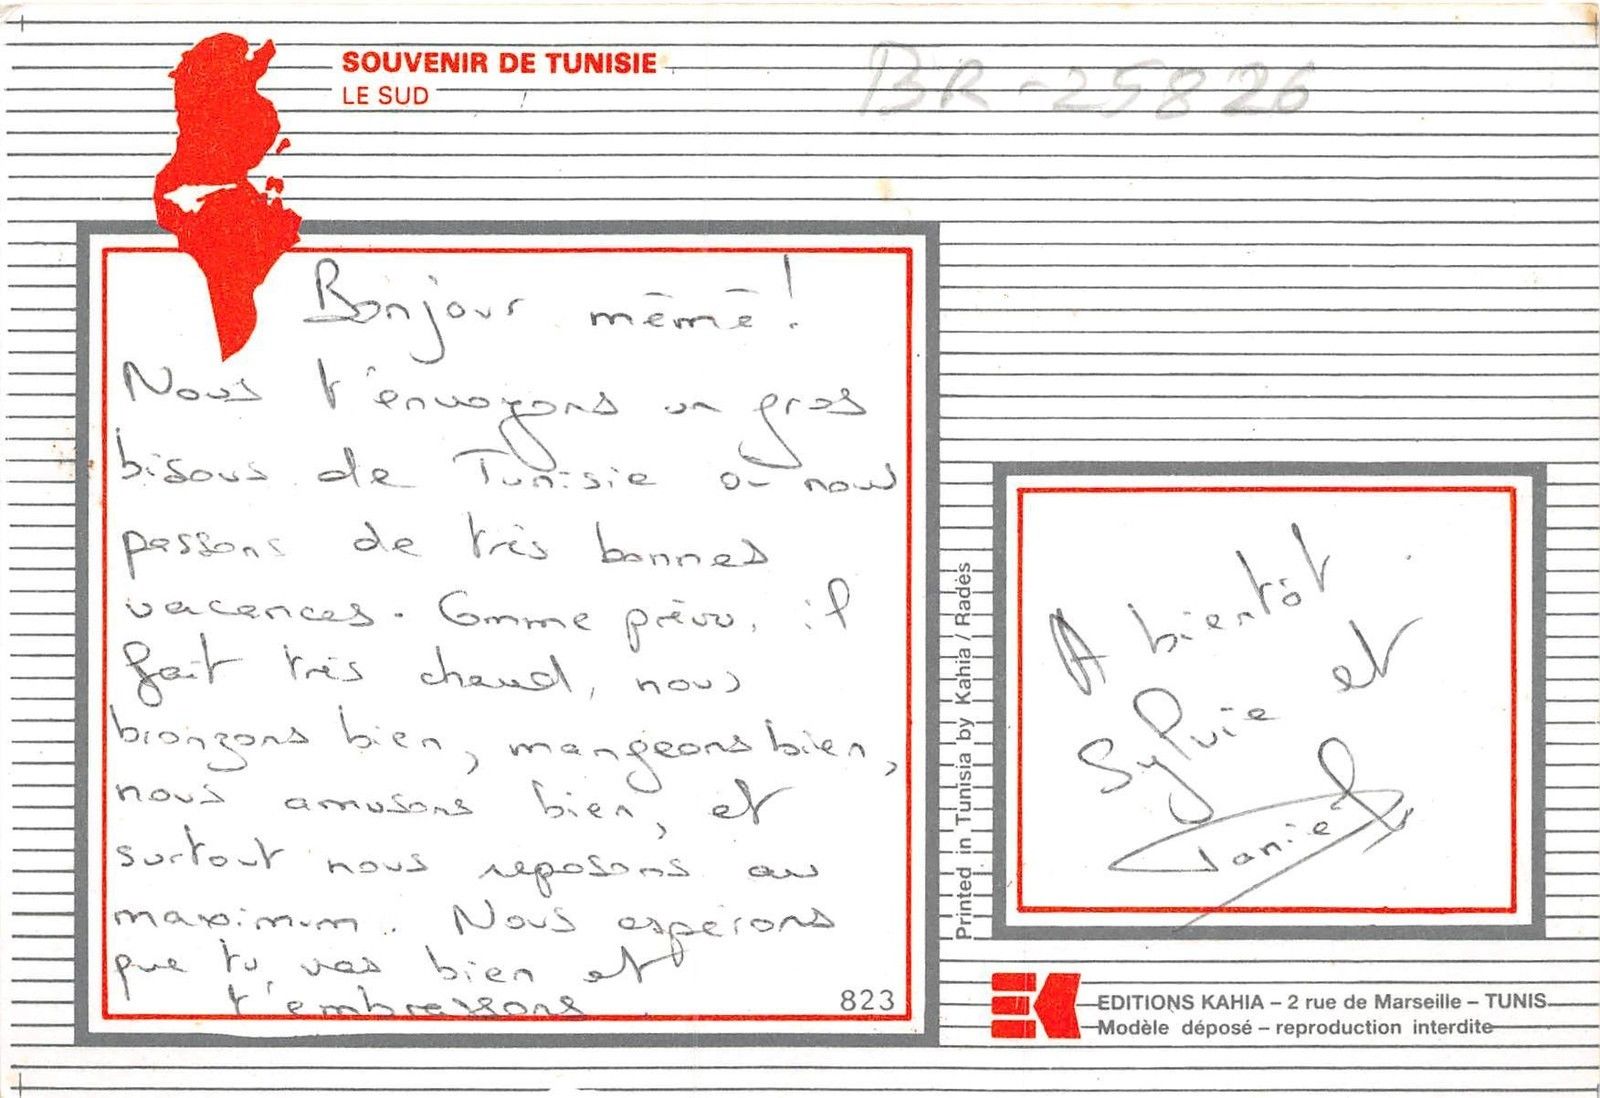 SOUVENIR DE TUNISIE
LE SUD
BR-25826
Bonjour mémé !
Nous t'envoyons un gros
bisous de Tunisie ou nous
passons de très bonnes
vacances. Comme prévu, il
fait très chaud, nous
bronzons bien, mangeons bien,
nous amusons bien, et
surtout nous reposons au
maximum. Nous espérons
que tu vas bien et
t'embrassons.
823
Printed in Tunisia by Kahia / Radès
A bientôt.
Sylvie et
Daniel
EDITIONS KAHIA – 2 rue de Marseille – TUNIS
Modèle déposé – reproduction interdite